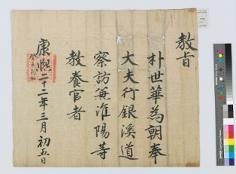 教旨
朴世華為朝奉
大夫行銀溪道
察訪兼淮陽等
教養官者
康熙二十二年三月初五日